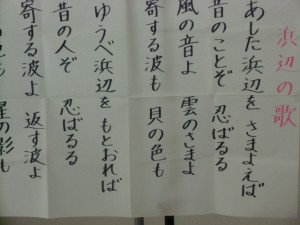 浜辺の歌
あした浜辺を さまよえば
昔のことぞ 忍ばるる
風の音よ 雲のさまよ
寄する波も 貝の色も
ゆうべ浜辺を もとおれば
昔の人ぞ 忍ばるる
寄する波よ 返す波よ
星の影も